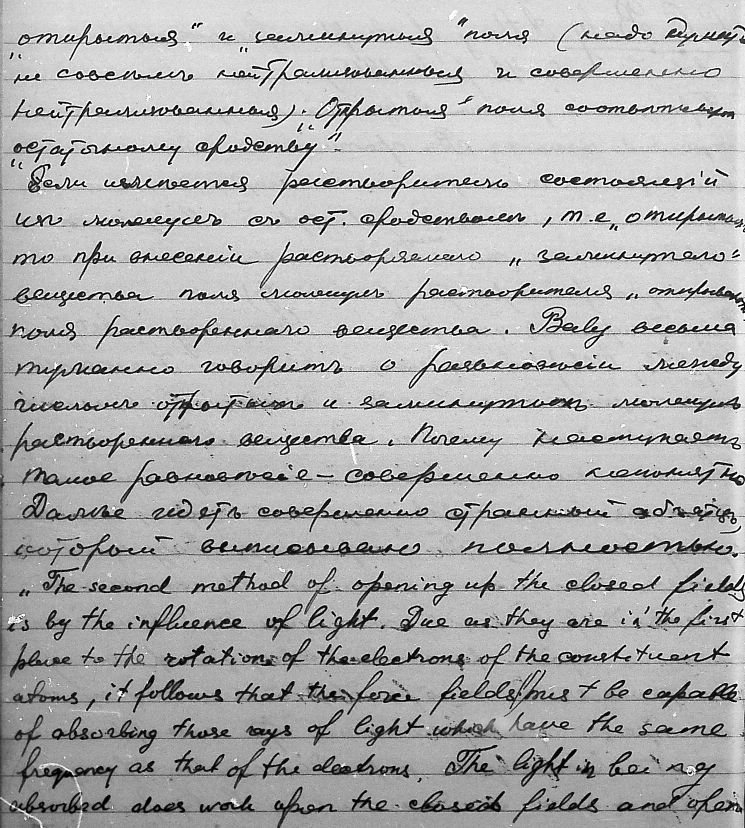 „открытыя“ и „замкнутыя“ поля (надо думать
не совсѣмъ нейтрализованныя и совершенно
нейтрализованныя). „Открытыя“ поля соотвѣтствуютъ
„остаточному сродству“.
Если имѣется растворитель состоящій
изъ молекулъ съ ост. сродствомъ, т.е. „открытыя
то при внесеніи растворяемаго „замкнутаго“
вещества поля молекулъ растворителя „открываютъ
поля раствореннаго вещества. Baly весьма
туманно говоритъ о равновѣсіи между
числомъ открытыхъ и замкнутыхъ молекулъ
раствореннаго вещества. Почему наступаетъ
такое равновѣсіе — совершенно непонятно
Дальше идетъ совершенно странный абзацъ,
который выписываю полностью.
„The second method of opening up the closed fields
is by the influence of light. Due as they are in the first
place to the rotation of the electrons of the constituent
atoms, it follows that the force fields must be capable
of absorbing those rays of light which have the same
frequency as that of the electrons. The light in being
absorbed does work upon the closed fields and opens